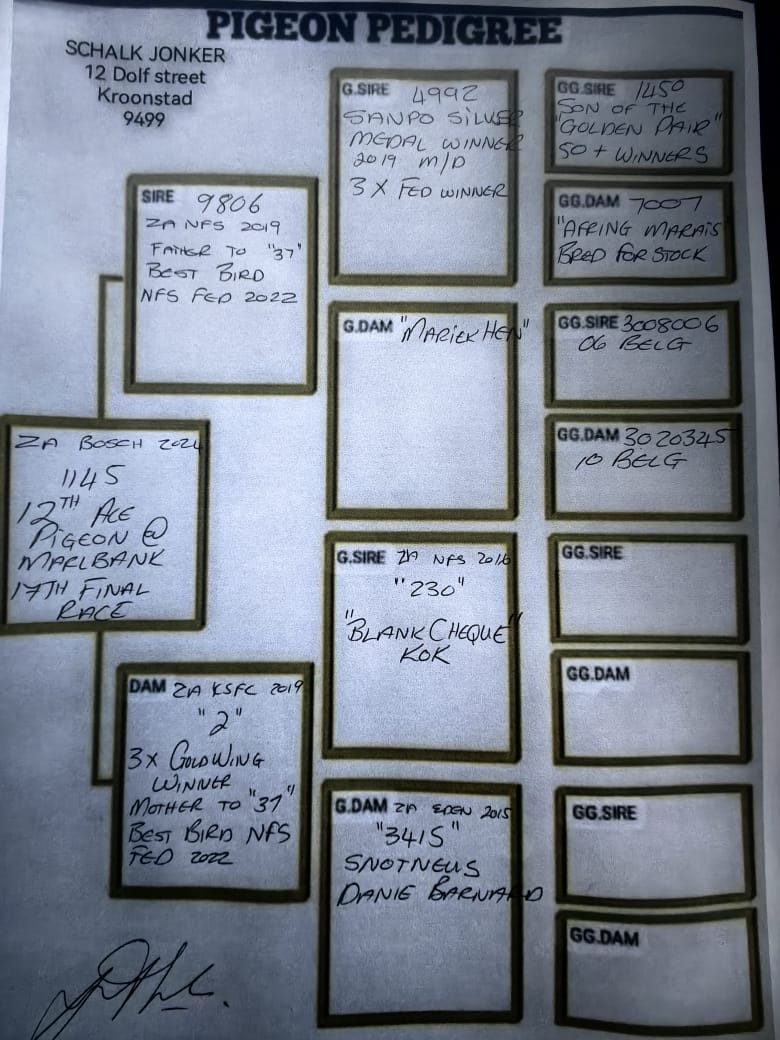 PIGEON PEDIGREE
SCHALK JONKER
12 Dolf street
Kroonstad
9499
ZA BOSCH 2021
1145
12TH ACE
PIGEON @
MARLBANK
17TH FINAL
RACE
SIRE 9806
ZA NFS 2019
FATHER TO "37"
BEST BIRD
NFS FED 2022
DAM ZA KSFC 2019
"2"
3X GOLDWING
WINNER
MOTHER TO "37"
BEST BIRD NFS
FED 2022
G.SIRE 4992
SANPO SILVER
MEDAL WINNER
2019 M/D
3 X FED WINNER
G.DAM "MARIEK HEN"
G.SIRE ZA NFS 2016
"230"
"BLANK CHEQUE"
KOK
G.DAM ZA EDEN 2015
"3415"
SNOTNEUS
DANIE BARNARD
GG.SIRE 1450
SON OF THE
"GOLDEN PAIR"
50 + WINNERS
GG.DAM 7007
"AFRING MARAIS"
BRED FOR STOCK
GG.SIRE 3008006
06 BELG
GG.DAM 3020345
10 BELG
GG.SIRE
GG.DAM
GG.SIRE
GG.DAM